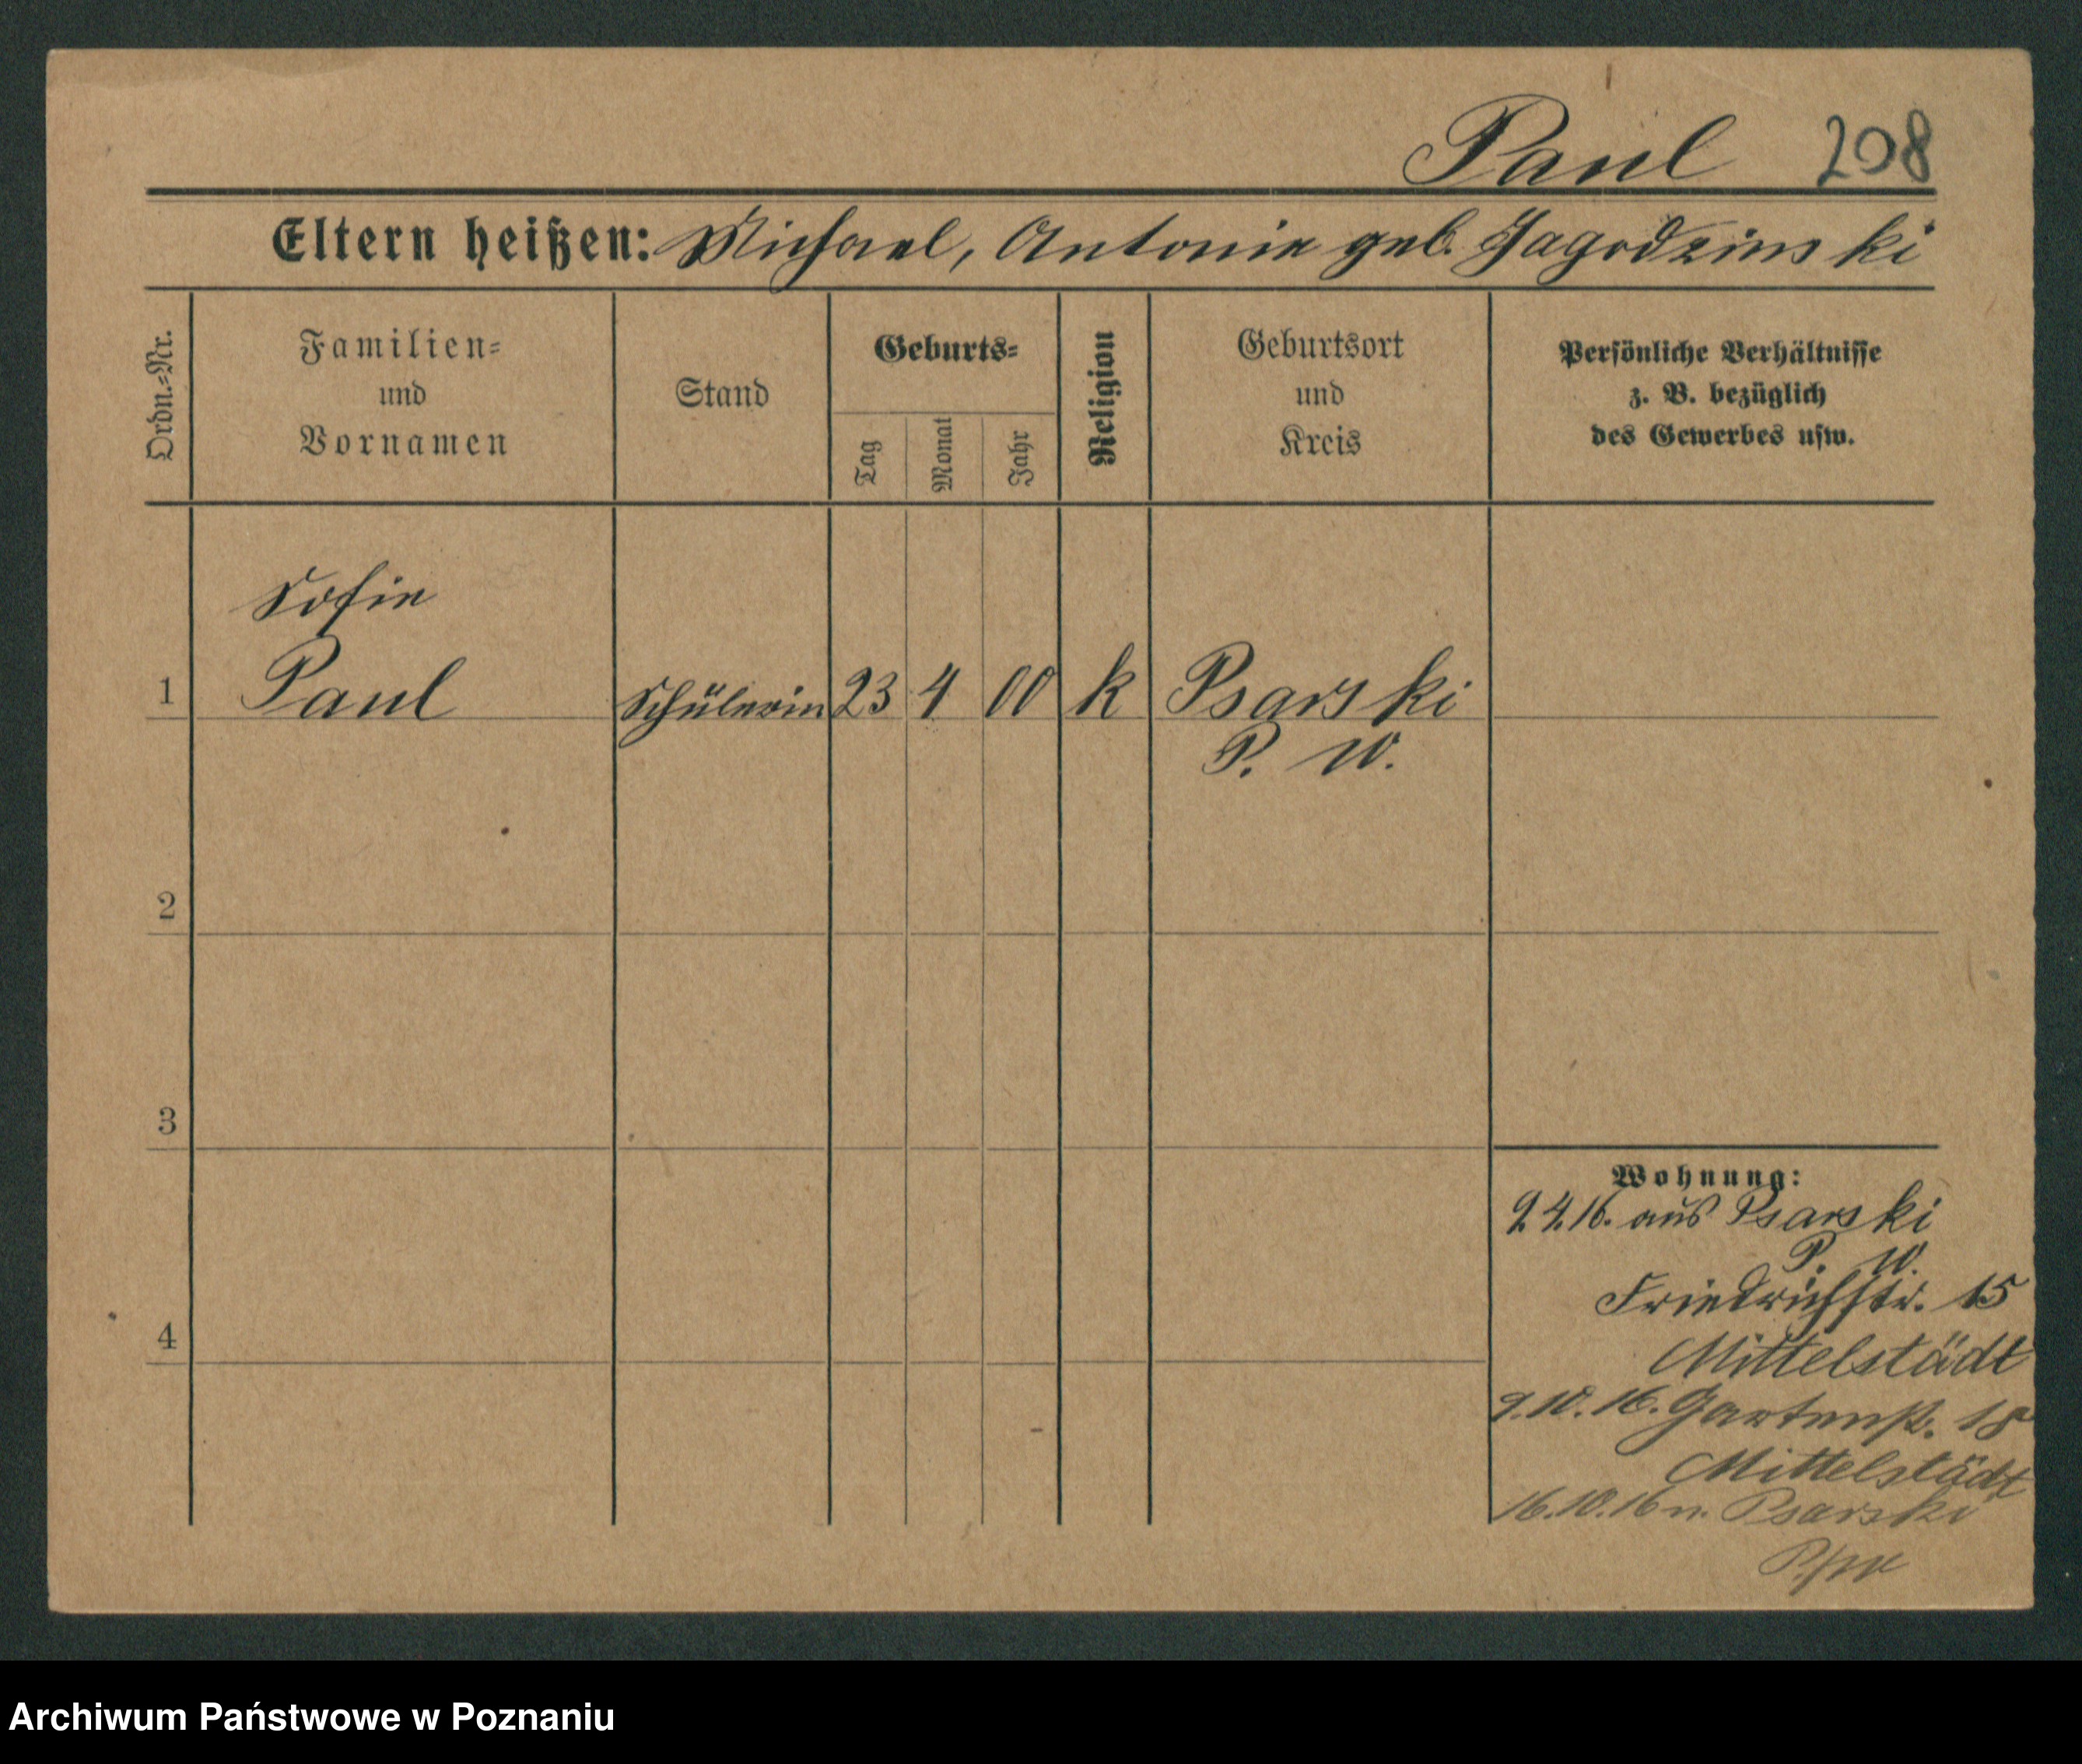 Paul 208
Eltern heißen: Michael, Antonie geb. Jagodzinski
Ordn.=Nr.
Familien=
und
Vornamen
Stand
Geburts=
Tag
Monat
Jahr
Religion
Geburtsort
und
Kreis
Persönliche Verhältnisse
z. B. bezüglich
des Gewerbes usw.
Sofie
1 Paul Schülerin 23 4 00 k Psarski
P. W.
2
3
4
Wohnung:
9.4.16. aus Psarski
P. W.
Friedrichstr. 15
Mittelstädt
9.10.16. Gartenstr. 18
Mittelstädt
16.10.16 n. Psarski
Archiwum Państwowe w Poznaniu